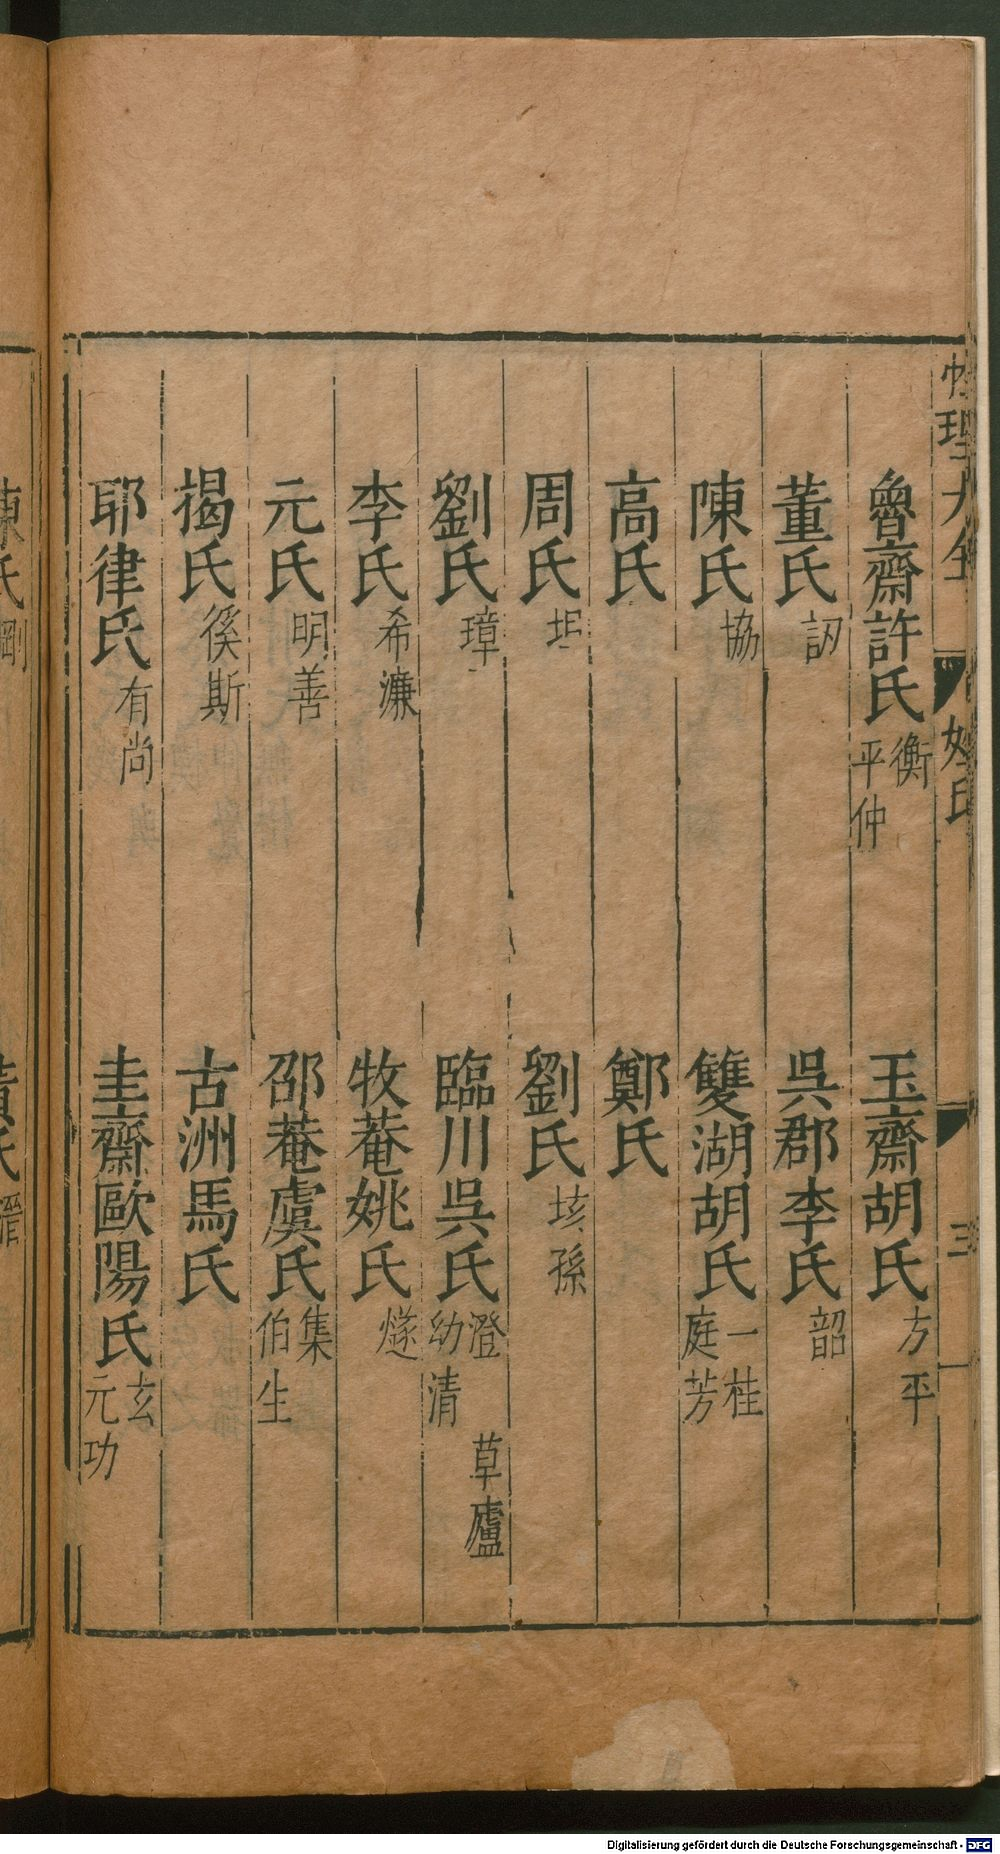 性理大全 姓氏 三
魯齋許氏 衡 平仲 玉齋胡氏 方平
董氏 訒 吳郡李氏 韶
陳氏 協 雙湖胡氏 一桂 庭芳
高氏 鄭氏
周氏 坦 劉氏 垓孫
劉氏 璋 臨川吳氏 澄 草廬 幼清
李氏 希濂 牧菴姚氏 燧
元氏 明善 邵菴虞氏 集 伯生
揭氏 徯斯 古洲馬氏
耶律氏 有尚 圭齋歐陽氏 玄 元功
陳氏 剛 黃氏 溍
Digitalisierung gefördert durch die Deutsche Forschungsgemeinschaft - DFG